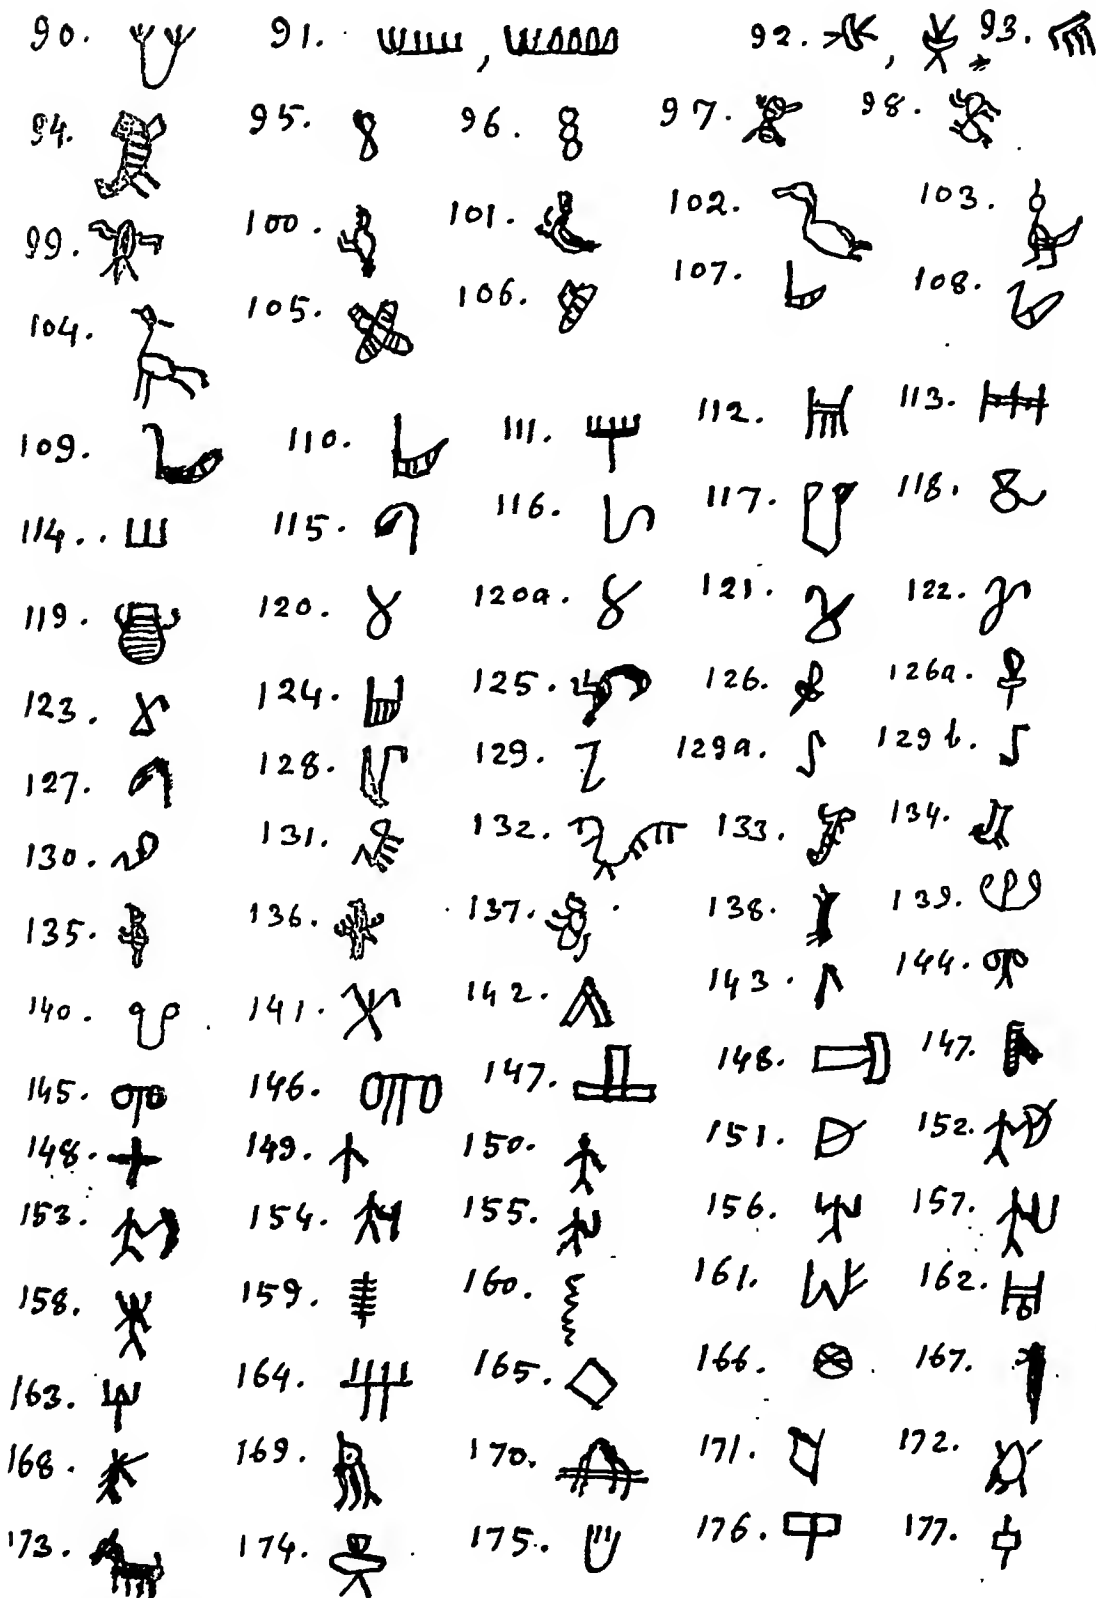 90. 91. , 92. , 93.
94. 95. 96. 97. 98.
99. 100. 101. 102. 103.
104. 105. 106. 107. 108.
109. 110. 111. 112. 113.
114. 115. 116. 117. 118.
119. 120. 120a. 121. 122.
123. 124. 125. 126. 126a.
127. 128. 129. 129a. 129b.
130. 131. 132. 133. 134.
135. 136. 137. 138. 139.
140. 141. 142. 143. 144.
145. 146. 147. 148. 147.
148. 149. 150. 151. 152.
153. 154. 155. 156. 157.
158. 159. 160. 161. 162.
163. 164. 165. 166. 167.
168. 169. 170. 171. 172.
173. 174. 175. 176. 177.